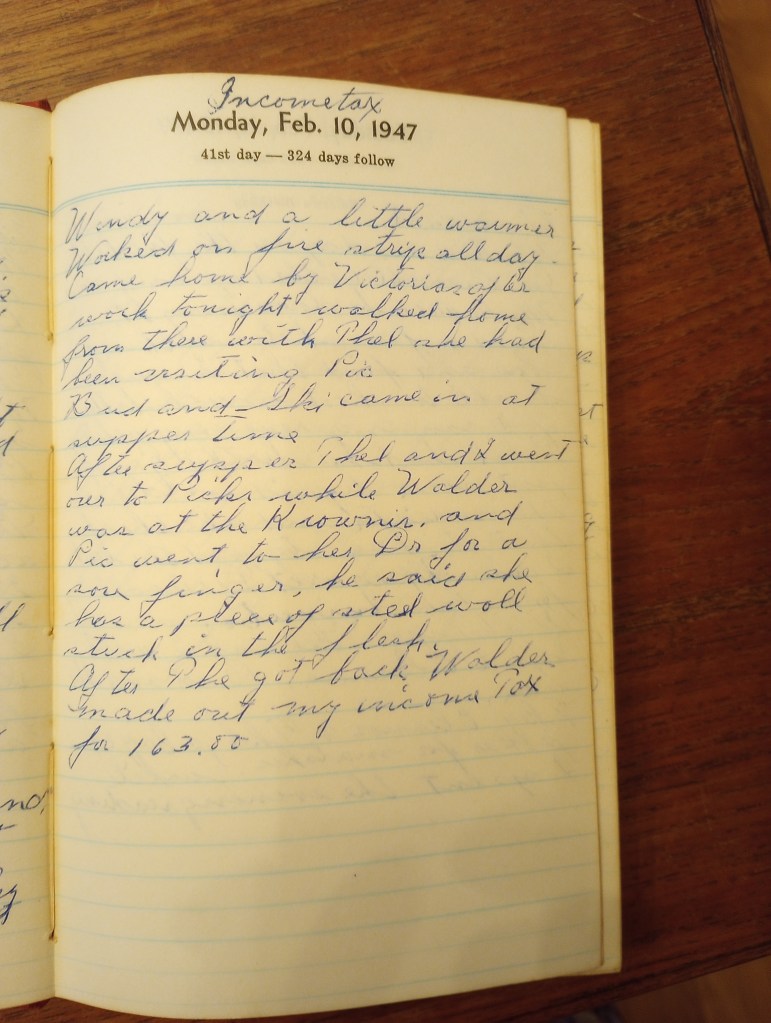 Income tax
Monday, Feb. 10, 1947
41st day — 324 days follow
Windy and a little warmer
Worked on fire strip all day.
Came home by Victorias after
work tonight walked home
from there with Phel she had
been visiting Pic
Bud and Ski came in at
supper time
After supper Phel and I went
our to Picks while Walder
was at the Kiownis. and
Pic went to her Dr for a
sore finger, he said she
has a piece of steel woll
stuck in the flesh.
After Phe got back Walder
made out my income Tax
for 163.80